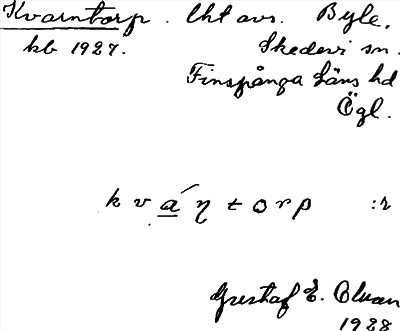 Kvarntorp. lht avs. Byle,
kb 1927. Skedevi sn.
Finspånga läns hd
Ögl.
k v á η t o r p :r
Gustaf E.
1928